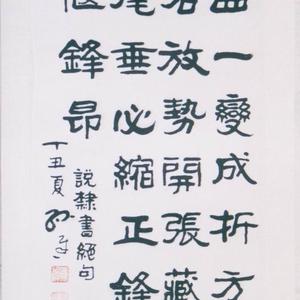 一變成折方
右放勢開張藏
尾垂必縮正鋒
鋒昂
說隸書絕句
丁丑夏